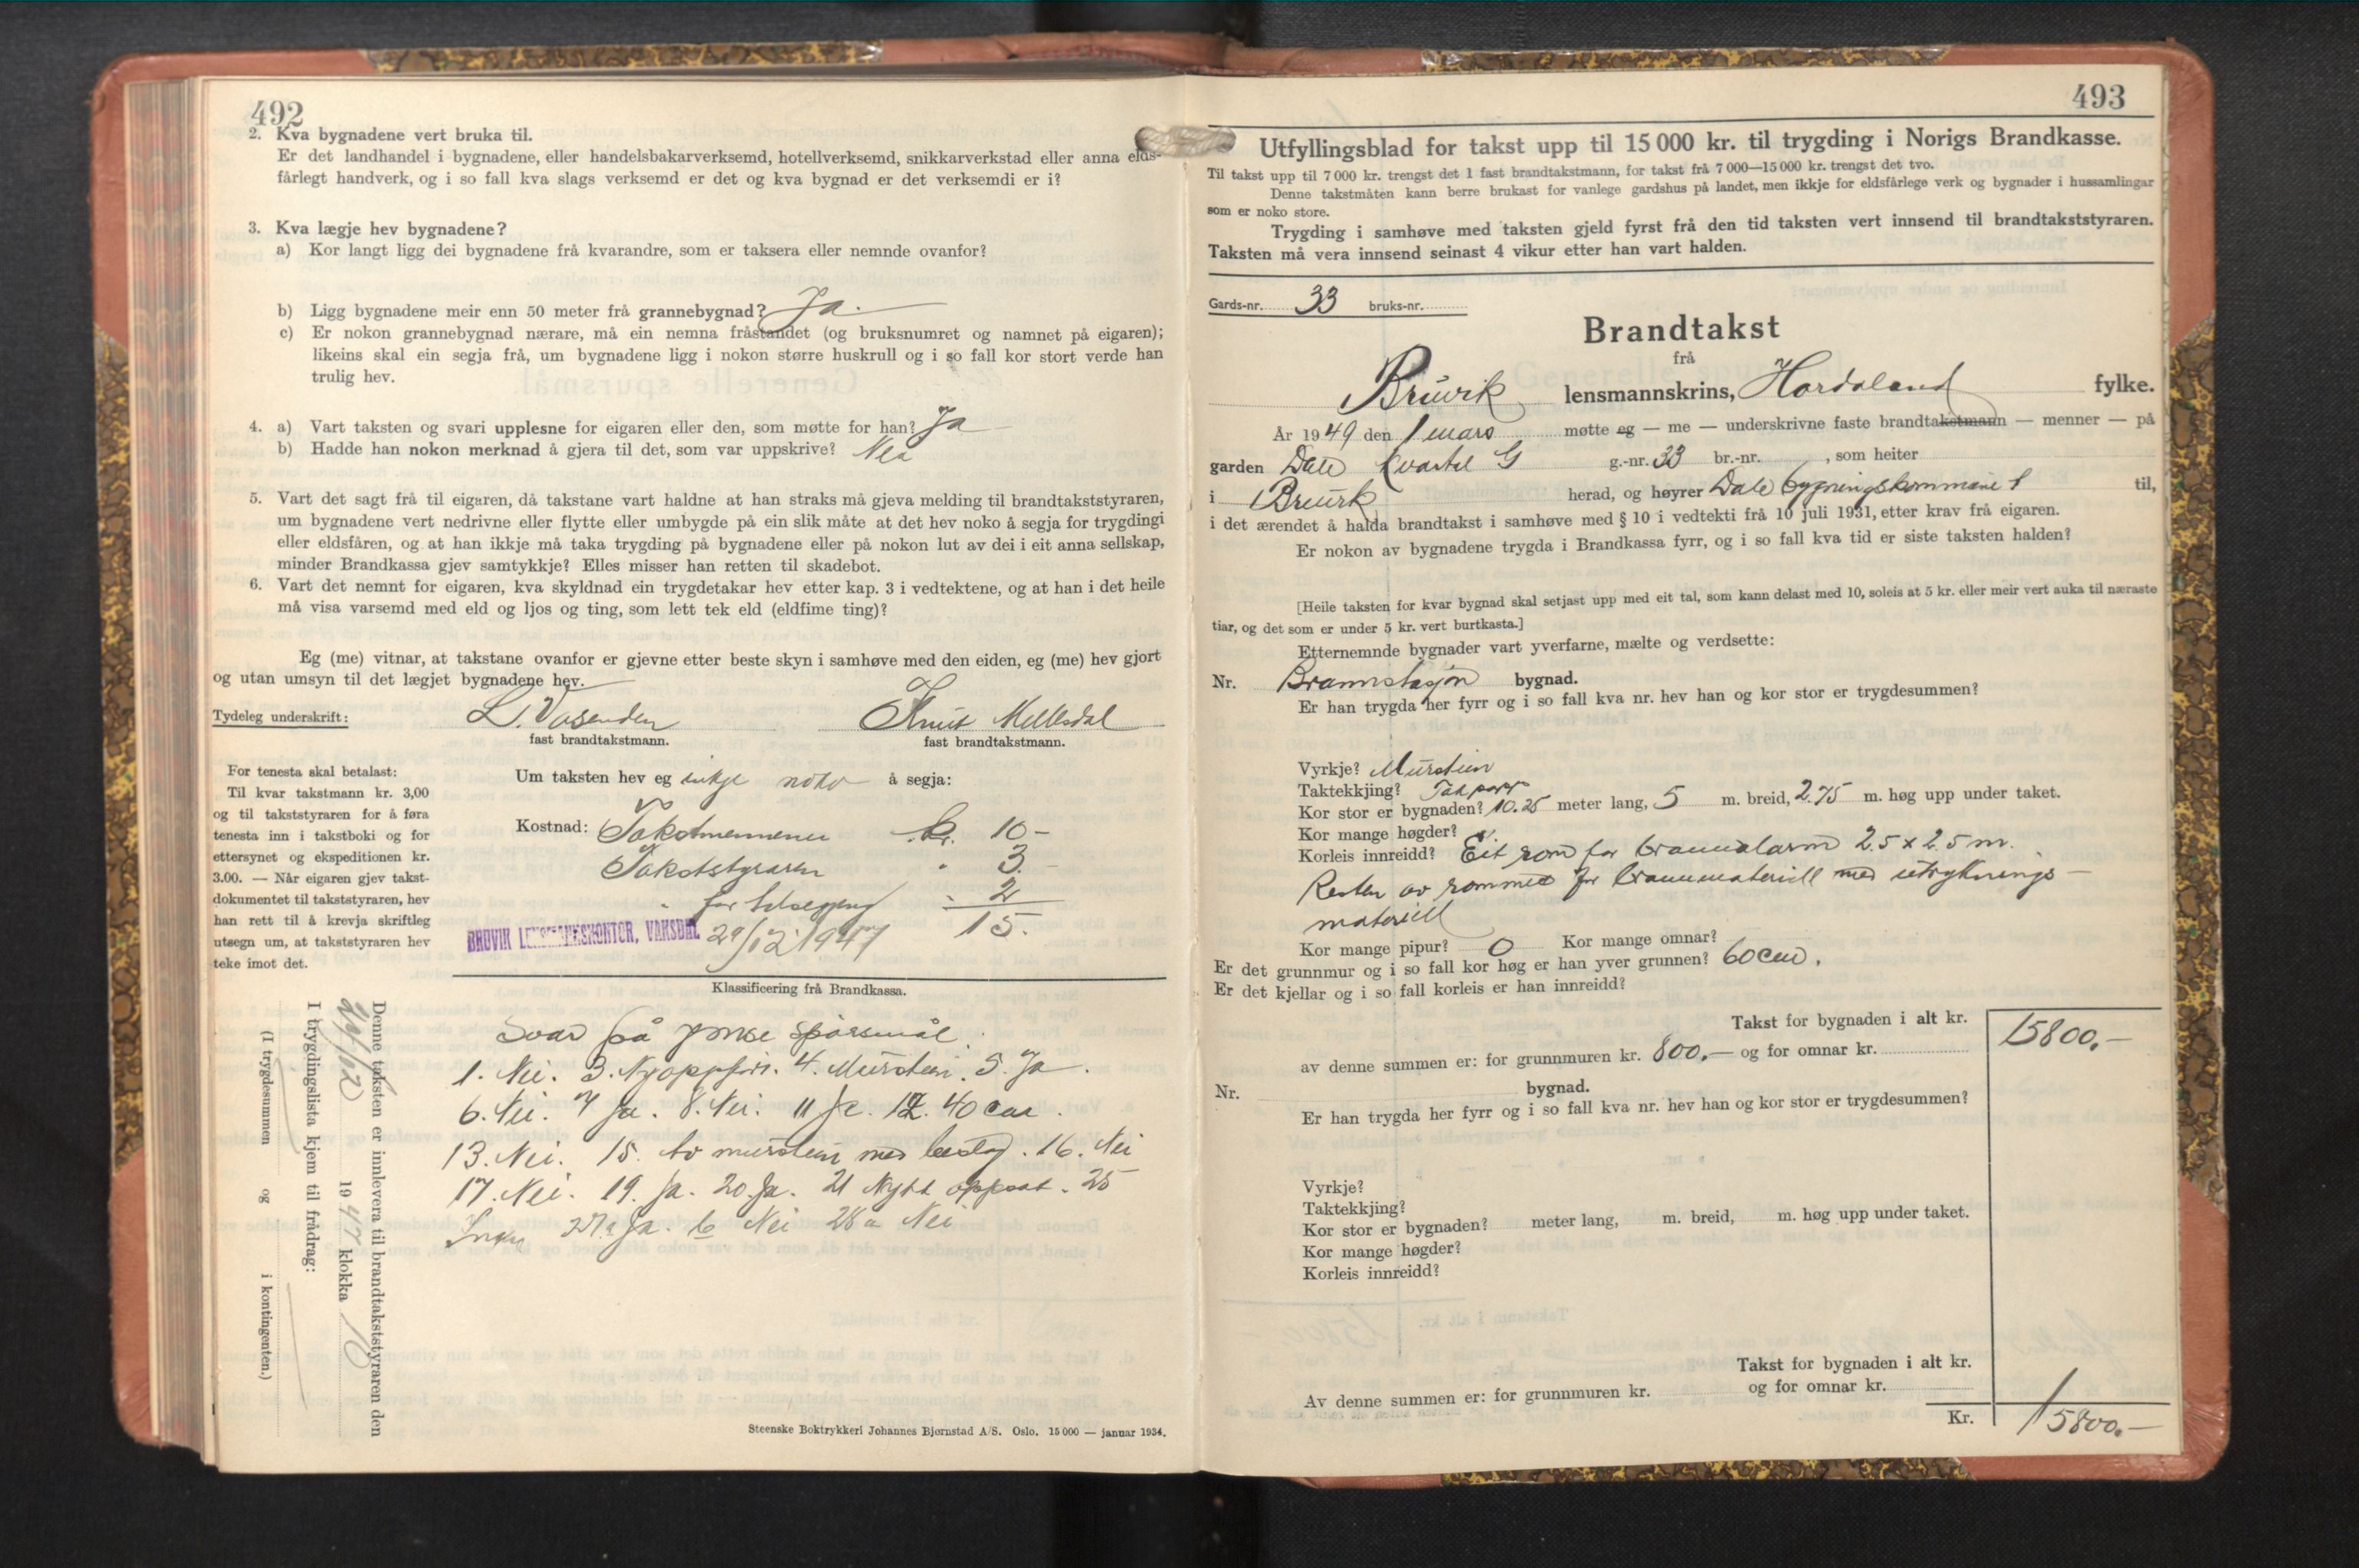 492
2. Kva bygnadene vert bruka til.
Er det landhandel i bygnadene, eller handelsbakarverksemd, hotellverksemd, snikkarverkstad eller anna elds-
fårlegt handverk, og i so fall kva slags verksemd er det og kva bygnad er det verksemdi er i?
3. Kva lægje hev bygnadene?
a) Kor langt ligg dei bygnadene frå kvarandre, som er taksera eller nemnde ovanfor?
b) Ligg bygnadene meir enn 50 meter frå grannebygnad? Ja.
c) Er nokon grannebygnad nærare, må ein nemna fråstandet (og bruksnumret og namnet på eigaren);
likeins skal ein segja frå, um bygnadene ligg i nokon større huskrull og i so fall kor stort verde han
trulig hev.
4. a) Vart taksten og svari upplesne for eigaren eller den, som møtte for han? Ja
b) Hadde han nokon merknad å gjera til det, som var uppskrive? Nei
5. Vart det sagt frå til eigaren, då takstane vart haldne at han straks må gjeva melding til brandtakststyraren,
um bygnadene vert nedrivne eller flytte eller umbygde på ein slik måte at det hev noko å segja for trygdingi
eller eldsfåren, og at han ikkje må taka trygding på bygnadene eller på nokon lut av dei i eit anna sellskap,
minder Brandkassa gjev samtykkje? Elles misser han retten til skadebot.
6. Vart det nemnt for eigaren, kva skyldnad ein trygdetakar hev etter kap. 3 i vedtektene, og at han i det heile
må visa varsemd med eld og ljos og ting, som lett tek eld (eldfime ting)?
Eg (me) vitnar, at takstane ovanfor er gjevne etter beste skyn i samhøve med den eiden, eg (me) hev gjort
og utan umsyn til det lægjet bygnadene hev.
Tydeleg underskrift: L. Vasenden Knut Mellesdal
fast brandtakstmann. fast brandtakstmann.
For tenesta skal betalast:
Til kvar takstmann kr. 3,00
og til takststyraren for å føra
tenesta inn i takstboki og for
ettersynet og ekspeditionen kr.
3.00. — Når eigaren gjev takst-
dokumentet til takststyraren, hev
han rett til å krevja skriftleg
utsegn um, at takststyraren hev
teke imot det.
Um taksten hev eg inkje noko å segja:
Kostnad: Takstmennene kr. 10-
Takststyraren " 3.-
" for 2
15.
BRUVIK LENSMANNSKONTOR, VAKSDAL 29/12 1947
Klassificering frå Brandkassa.
Svar på ymse spørsmål.
1. Nei. 3. Nyoppført. 4. Murstein. 5. Ja.
6. Nei. 7 Ja. 8. Nei. 11 Ja. 12. 40 cm.
13. Nei. 15. Av murstein med beslag. 16. Nei
17. Nei. 19. Ja. 20. Ja. 21 Nytt oppsat. 25
Ingen 27a Ja. b Nei 28a Nei
Denne taksten er innlevera til brandtakststyraren den
29/12 1947 klokka 10
I trygdingslista kjem til frådrag:
(I trygdesummen og i kontingenten.)
Steenske Boktrykkeri Johannes Bjørnstad A/S. Oslo. 15 000 — januar 1934.
493
Utfyllingsblad for takst upp til 15 000 kr. til trygding i Norigs Brandkasse.
Til takst upp til 7 000 kr. trengst det 1 fast brandtakstmann, for takst frå 7 000—15 000 kr. trengst det tvo.
Denne takstmåten kann berre brukast for vanlege gardshus på landet, men ikkje for eldsfårlege verk og bygnader i hussamlingar
som er noko store.
Trygding i samhøve med taksten gjeld fyrst frå den tid taksten vert innsend til brandtakststyraren.
Taksten må vera innsend seinast 4 vikur etter han vart halden.
Gards-nr. 33 bruks-nr.
Brandtakst
frå
Bruvik lensmannskrins, Hordaland fylke.
År 1949 den 1 mars møtte eg — me — underskrivne faste brandtakstmann — menner — på
garden Dale Kvartal G g.-nr. 33 br.-nr. , som heiter
i Bruvik herad, og høyrer Dale bygningskommune til,
i det ærendet å halda brandtakst i samhøve med § 10 i vedtekti frå 10 juli 1931, etter krav frå eigaren.
Er nokon av bygnadene trygda i Brandkassa fyrr, og i so fall kva tid er siste taksten halden?
[Heile taksten for kvar bygnad skal setjast upp med eit tal, som kann delast med 10, soleis at 5 kr. eller meir vert auka til næraste
tiar, og det som er under 5 kr. vert burtkasta.]
Etternemnde bygnader vart yverfarne, mælte og verdsette:
Nr. Brannstasjon bygnad.
Er han trygda her fyrr og i so fall kva nr. hev han og kor stor er trygdesummen?
Vyrkje? Murstein
Taktekkjing? Takpapp
Kor stor er bygnaden? 10.25 meter lang, 5 m. breid, 2.75 m. høg upp under taket.
Kor mange høgder?
Korleis innreidd? Eit rom for brannalarm 2.5 x 2.5 m.
Resten av rommet for brannmateriell med utryknings-
materiell
Kor mange pipur? 0 Kor mange omnar?
Er det grunnmur og i so fall kor høg er han yver grunnen? 60 cm.
Er det kjellar og i so fall korleis er han innreidd?
Takst for bygnaden i alt kr. 15800,-
av denne summen er: for grunnmuren kr. 800,- og for omnar kr.
Nr. bygnad.
Er han trygda her fyrr og i so fall kva nr. hev han og kor stor er trygdesummen?
Vyrkje?
Taktekkjing?
Kor stor er bygnaden? meter lang, m. breid, m. høg upp under taket.
Kor mange høgder?
Korleis innreidd?
Takst for bygnaden i alt kr.
Av denne summen er: for grunnmuren kr. og for omnar kr.
Kr. 15800,-